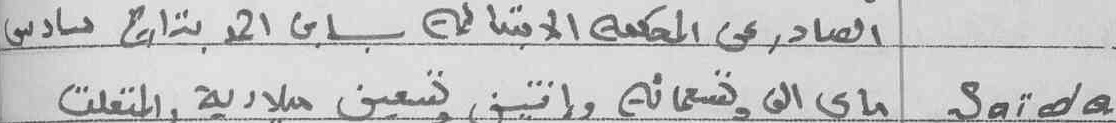 الصادر عن المحكمة الابتدائية بسلا بن احمد بتاريخ سادس
ماي الف وتسعمائة واثنين وتسعين ميلادية والمتعلق Saida